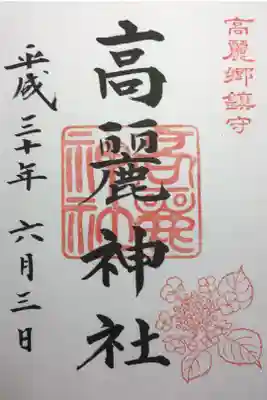 高麗郷鎮守
高麗神社
平成三十年 六月三日
高麗神社